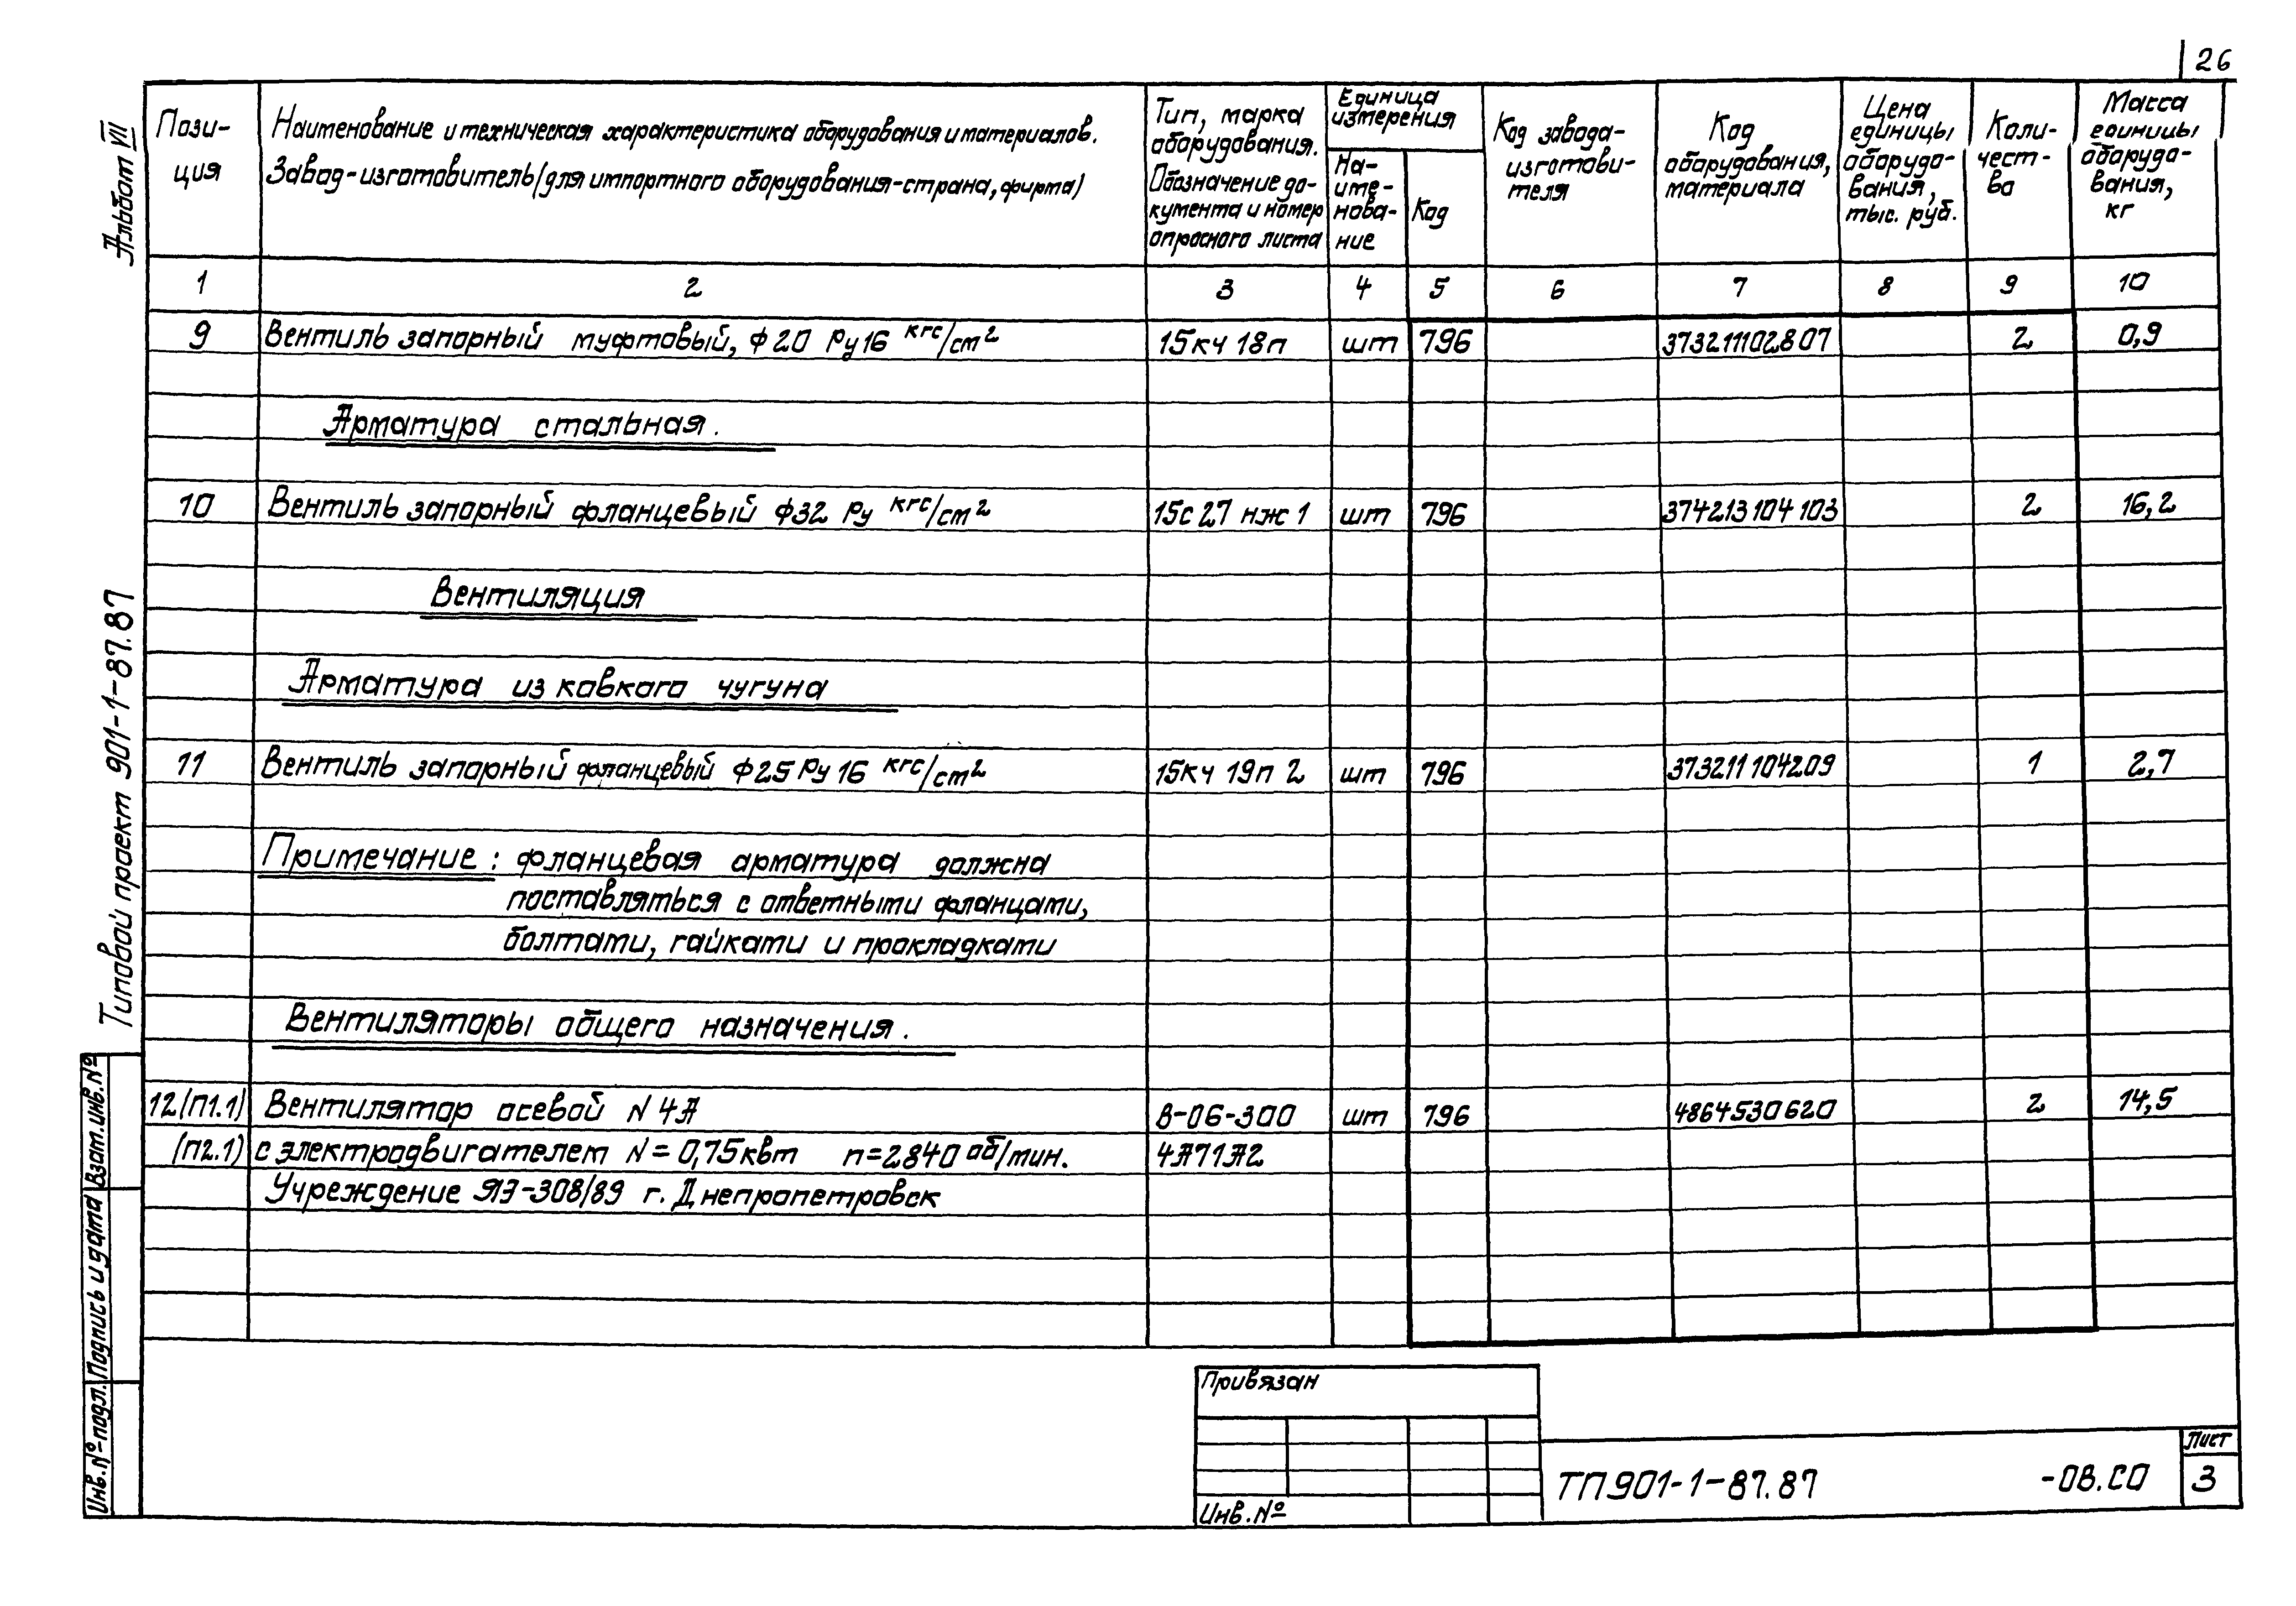 26
Альбом VII
Типовой проект 901-1-87.87
Пози-
ция
Наименование и техническая характеристика оборудования и материалов.
Завод-изготовитель (для импортного оборудования-страна, фирма)
Тип, марка
оборудования.
Обозначение до-
кумента и номер
опросного листа
Единица
измерения
На-
име-
нова-
ние
Код
Код завода-
изготови-
теля
Код
оборудования,
материала
Цена
единицы
оборудо-
вания,
тыс. руб.
Коли-
чест-
во
Масса
единицы
оборудо-
вания,
кг
1 2 3 4 5 6 7 8 9 10
9 Вентиль запорный муфтовый, ф 20 Ру 16 кгс/см² 15кч 18п шт 796 373211102807 2 0,9
Арматура стальная.
10 Вентиль запорный фланцевый ф32 Ру кгс/см² 15с 27 нж 1 шт 796 374213104103 2 16,2
Вентиляция
Арматура из ковкого чугуна
11 Вентиль запорный фланцевый ф25 Ру 16 кгс/см² 15кч 19п 2 шт 796 373211104209 1 2,7
Примечание: фланцевая арматура должна
поставляться с ответными фланцами,
болтами, гайками и прокладками
Вентиляторы общего назначения.
12(П1.1) Вентилятор осевой N 4А В-06-300 шт 796 4864530620 2 14,5
(П2.1) с электродвигателем N = 0,75квт n=2840 об/мин. 4А71А2
Учреждение ЯЭ-308/89 г. Днепропетровск
Взам.инв.№
Подпись и дата
Инв.№ подл.
Привязан
Инв.№
ТП901-1-87.87 -ОВ.СО
Лист
3